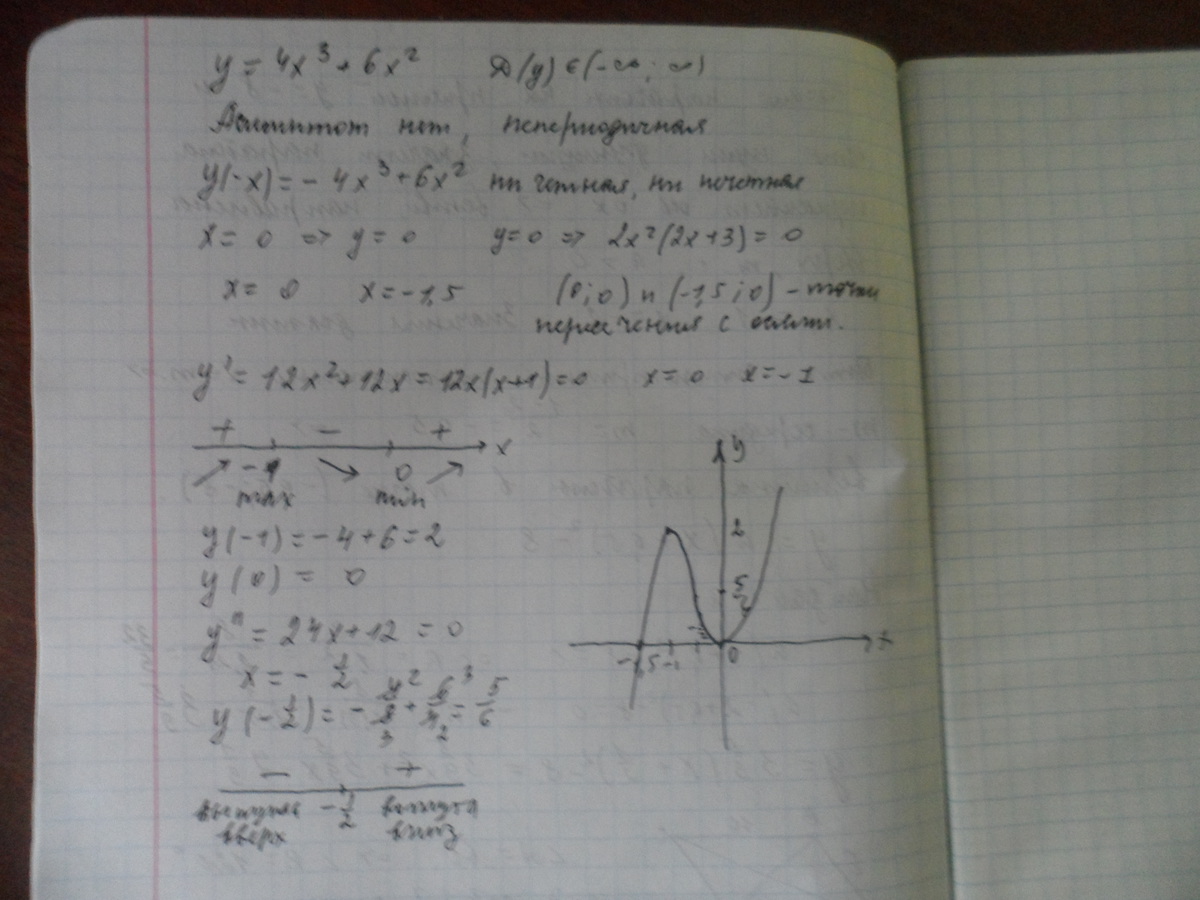 y = 4x³ + 6x² D(y) ∈ (-∞; ∞)
Асимптот нет, непериодичная
y(-x) = -4x³ + 6x² ни четная, ни нечетная
x = 0 => y = 0 y = 0 => 2x²(2x+3) = 0
x = 0 x = -1,5 (0; 0) и (-1,5; 0) - точки
пересечения с осями.
y' = 12x² + 12x = 12x(x+1) = 0 x = 0 x = -1
+ - + x
-1 0
max min
y(-1) = -4 + 6 = 2
y(0) = 0
y" = 24x + 12 = 0
x = -1/2
- +
-1/2
вверх вниз
y
2
-1,5 -1 0 x